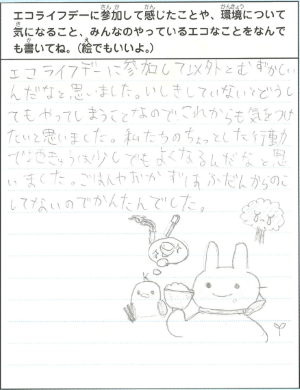 エコライフデーに参加して感じたことや、環境について
気になること、みんなのやっているエコなことをなんで
も書いてね。（絵でもいいよ。）
エコライフデーに参加して以外とむずかしい
んだなと思いました。いしきしていないとどうし
てもやってしまうことなのでこれからも気をつけ
たいと思いました。私たちのちょっとした行動
でちきゅうは少しでもよくなるんだなと思
いました。ごはんやおかずはふだんからのこ
してないのでかんたんでした。